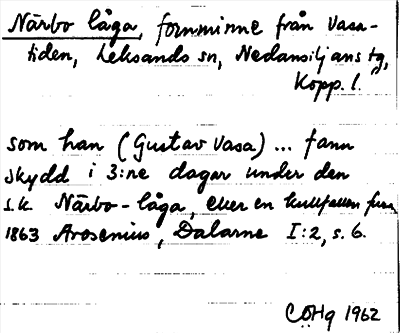 Närbo låga, fornminne från Vasa-
tiden, Leksands sn, Nedansiljans tg,
Kopp. l.
som han (Gustav Vasa) ... fann
skydd i 3:ne dagar under den
s.k. Närbo-låga, eller en kullfallen fura
1863 Arosenius, Dalarne I:2, s. 6.
CÖHg 1962